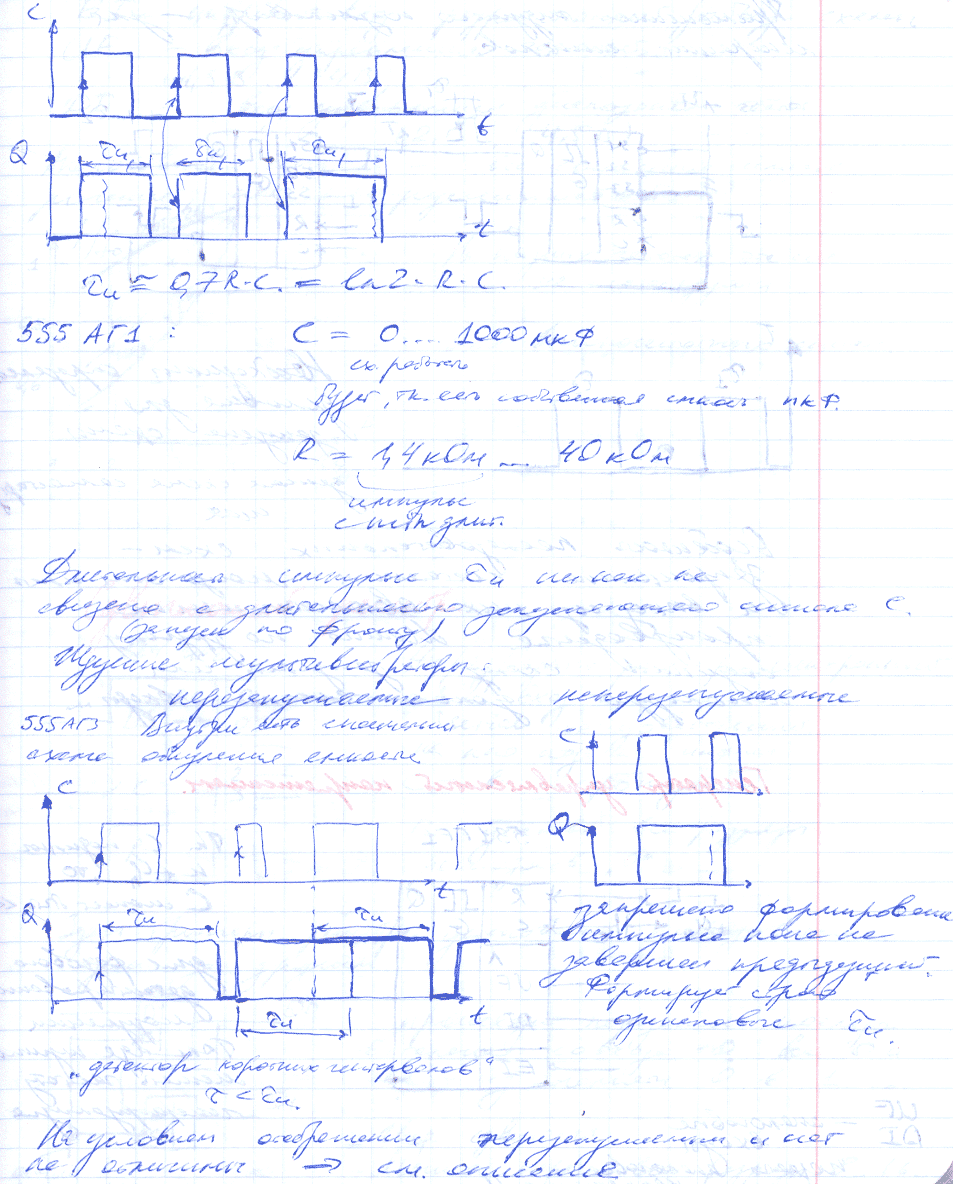 C
t
Q
τи, τи, τи,
t
τи ≅ 0,7R·C. = ln2·R·C.
555 АГ1 : C = 0... 1000 мкФ
будет, т.к. есть собственная емкость пкФ.
R = 1,4 кОм ... 40 кОм
импульс
длит.
Длительность импульса τи никак не
связана с длительностью запускающего сигнала C.
(запуск по фронту)
Ждущие мультивибраторы:
перезапускаемые неперезапускаемые
555АГ3 Внутри есть
схема обнуления емкости
C
t
Q
τи τи
t
τи
C
Q
запрещено формирование
импульса пока не
завершен предыдущий.
Формирует строго
одинаковые τи.
„детектор коротких интервалов“
τ < τи.
На условном отображении перезапускаемый и нет
не отличимы → см. описание